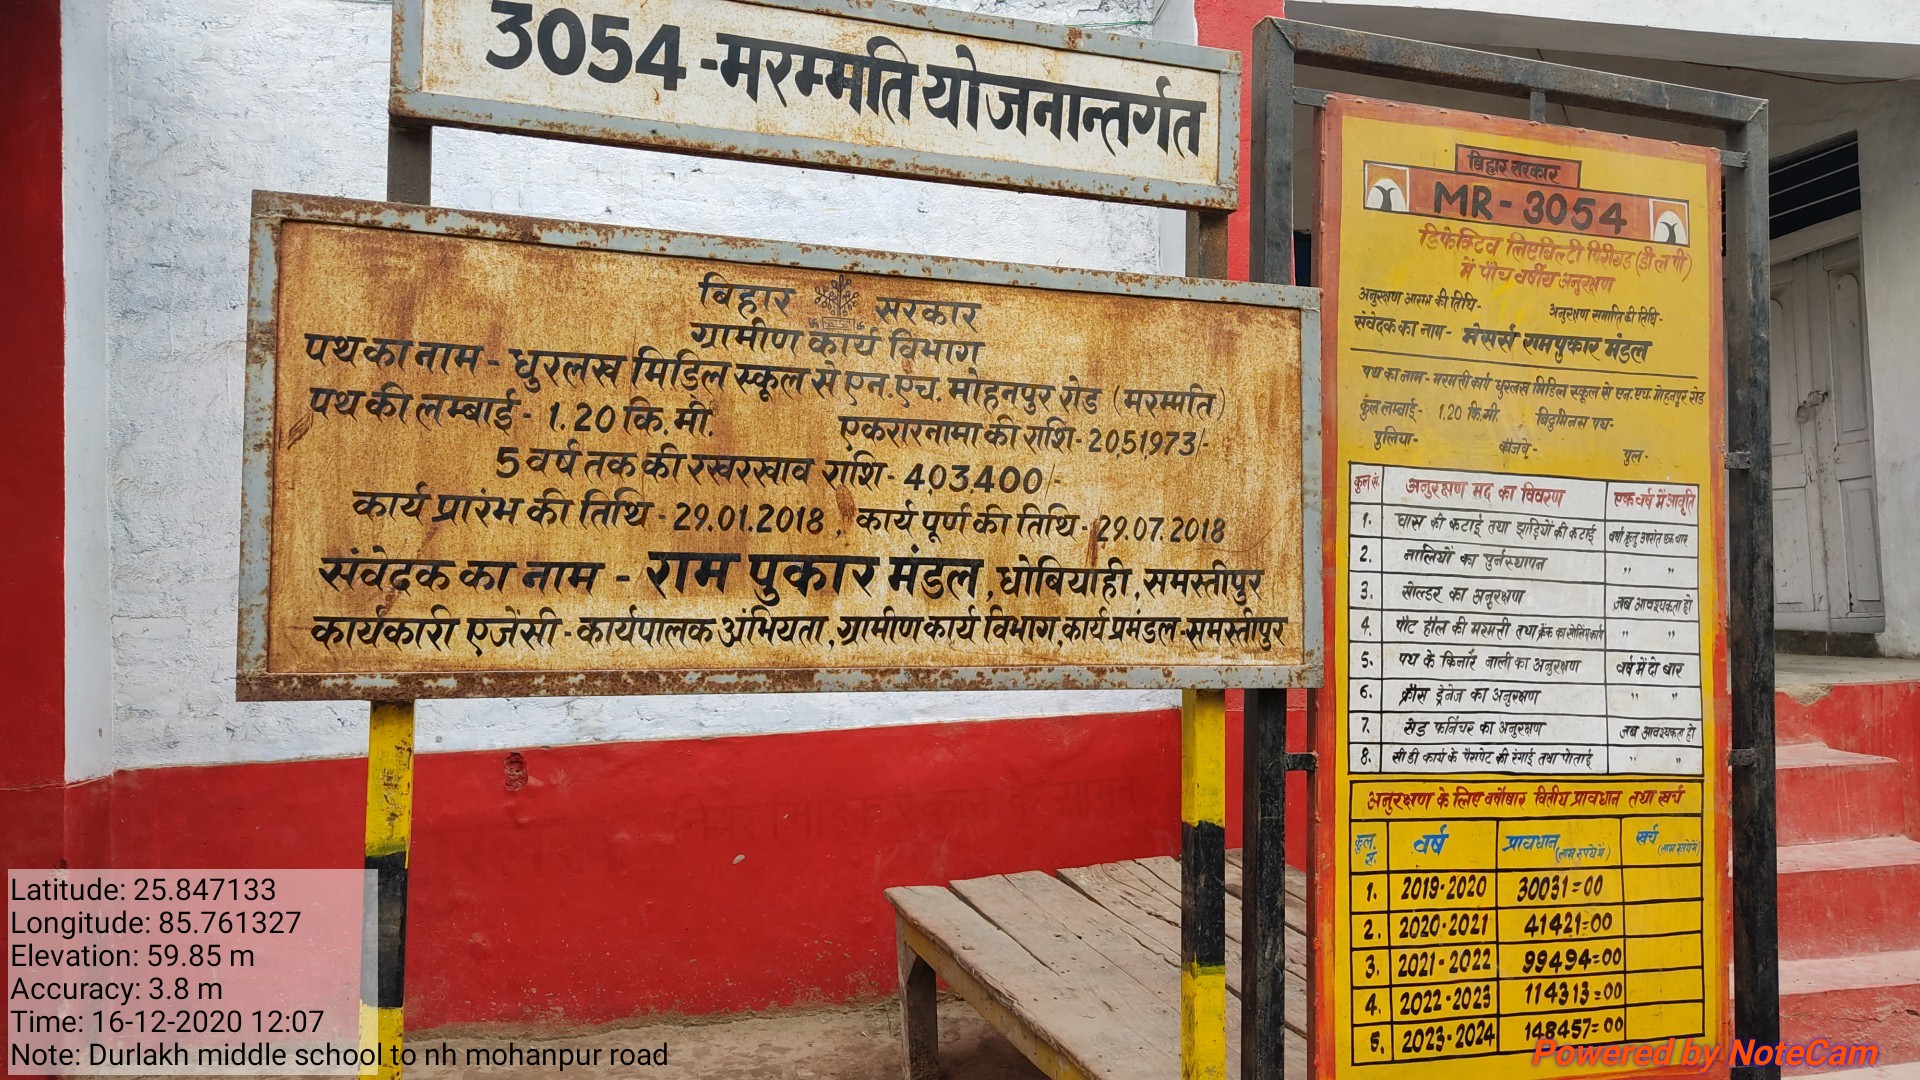 3054-मरम्मति योजनान्तर्गत
बिहार सरकार
ग्रामीण कार्य विभाग
पथ का नाम - धुरलख मिडिल स्कूल से एन.एच. मोहनपुर रोड (मरम्मति)
पथ की लम्बाई - 1.20 कि.मी. एकरारनामा की राशि- 20,51,973/-
5 वर्ष तक की रखरखाव राशि - 4,03,400/-
कार्य प्रारंभ की तिथि - 29.01.2018, कार्य पूर्ण की तिथि - 29.07.2018
संवेदक का नाम - राम पुकार मंडल, धोबियाही, समस्तीपुर
कार्यकारी एजेंसी - कार्यपालक अभियता, ग्रामीण कार्य विभाग, कार्य प्रमंडल-समस्तीपुर
बिहार सरकार
MR - 3054
डिफेक्टिव लिएबिल्टी पिरीयड (डी ल पी)
में पाँच वर्षीय अनुरक्षण
अनुरक्षण आरम्भ की तिथि- अनुरक्षण समाप्ति की तिथि-
संवेदक का नाम - मेसर्स राम पुकार मंडल
पथ का नाम - मरमती कार्य धुरलख मिडिल स्कूल से एन.एच. मोहनपुर रोड
कुल लम्बाई- 1.20 कि.मी. बिटुमिनस पथ-
पुलिया- कॉजवे- पुल-
कुल सं. अनुरक्षण मद का विवरण एक वर्ष में आवृति
1. घास की कटाई तथा झाड़ियों की कटाई वर्षा ऋतु उपरांत एक बार
2. नालियों का पुर्नस्थापन " "
3. सोल्डर का अनुरक्षण जब आवश्यकता हो
4. पॉट हॉल की मरमती तथा क्रैक का सीलिंग कार्य " "
5. पथ के किनारे नाली का अनुरक्षण वर्ष में दो बार
6. क्रॉस ड्रेनेज का अनुरक्षण " "
7. रोड फर्निचर का अनुरक्षण जब आवश्यकता हो
8. सी डी कार्य के पैरापेट की रंगाई तथा पोताई " "
अनुरक्षण के लिए वर्षावार वितीय प्रावधान तथा खर्च
कुल. स. वर्ष प्रावधान (लाख रूपये में) खर्च (लाख रूपये में)
1. 2019-2020 30031=00
2. 2020-2021 41421=00
3. 2021-2022 99494=00
4. 2022-2023 114313=00
5. 2023-2024 148457=00
Latitude: 25.847133
Longitude: 85.761327
Elevation: 59.85 m
Accuracy: 3.8 m
Time: 16-12-2020 12:07
Note: Durlakh middle school to nh mohanpur road
Powered by NoteCam